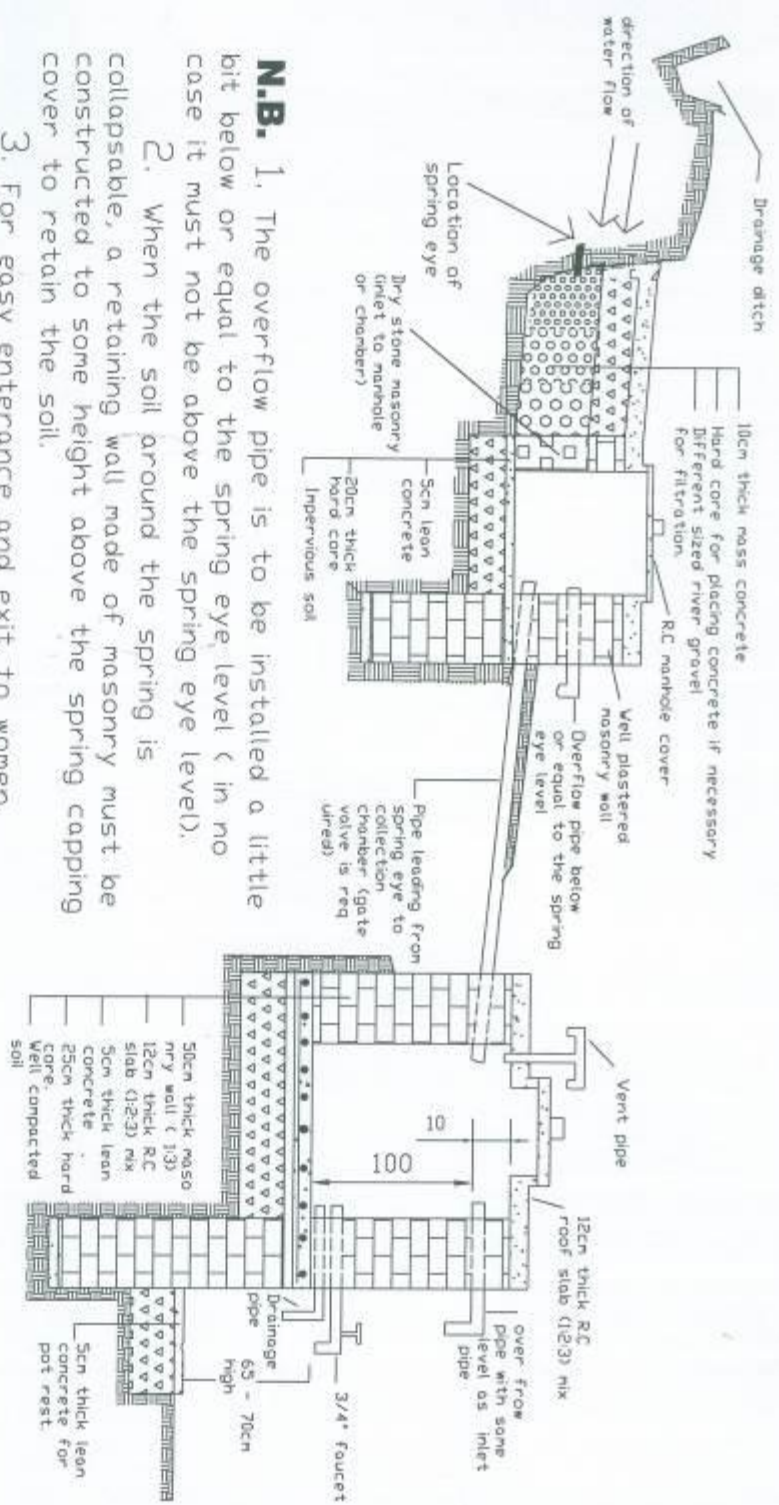 Drainage ditch
direction of
water flow
Location of
spring eye
Dry stone masonry
(inlet to manhole
or chamber)
10cm thick mass concrete
Hard core for placing concrete if necessary
Different sized river gravel
for filtration
R.C manhole cover
Well plastered
masonry wall
Overflow pipe below
or equal to the spring
eye level
5cm lean
concrete
20cm thick
hard core
Impervious soil
Pipe leading from
spring eye to
collection
chamber (gate
valve is req
uired)
Vent pipe
12cm thick R.C
roof slab (1:2:3) mix
over frow
pipe with same
level as inlet
pipe
10
100
3/4" faucet
65 - 70cm
high
Drainage
pipe
50cm thick maso
nry wall ( 1:3)
12cm thick R.C
slab (1:2:3) mix
5cm thick lean
concrete .
25cm thick hard
core.
Well compacted
soil
5cm thick lean
concrete for
pot rest.
N.B. 1. The overflow pipe is to be installed a little
bit below or equal to the spring eye level ( in no
case it must not be above the spring eye level).
2. When the soil around the spring is
collapsable, a retaining wall made of masonry must be
constructed to some height above the spring capping
cover to retain the soil.
3. For easy enterance and exit to women